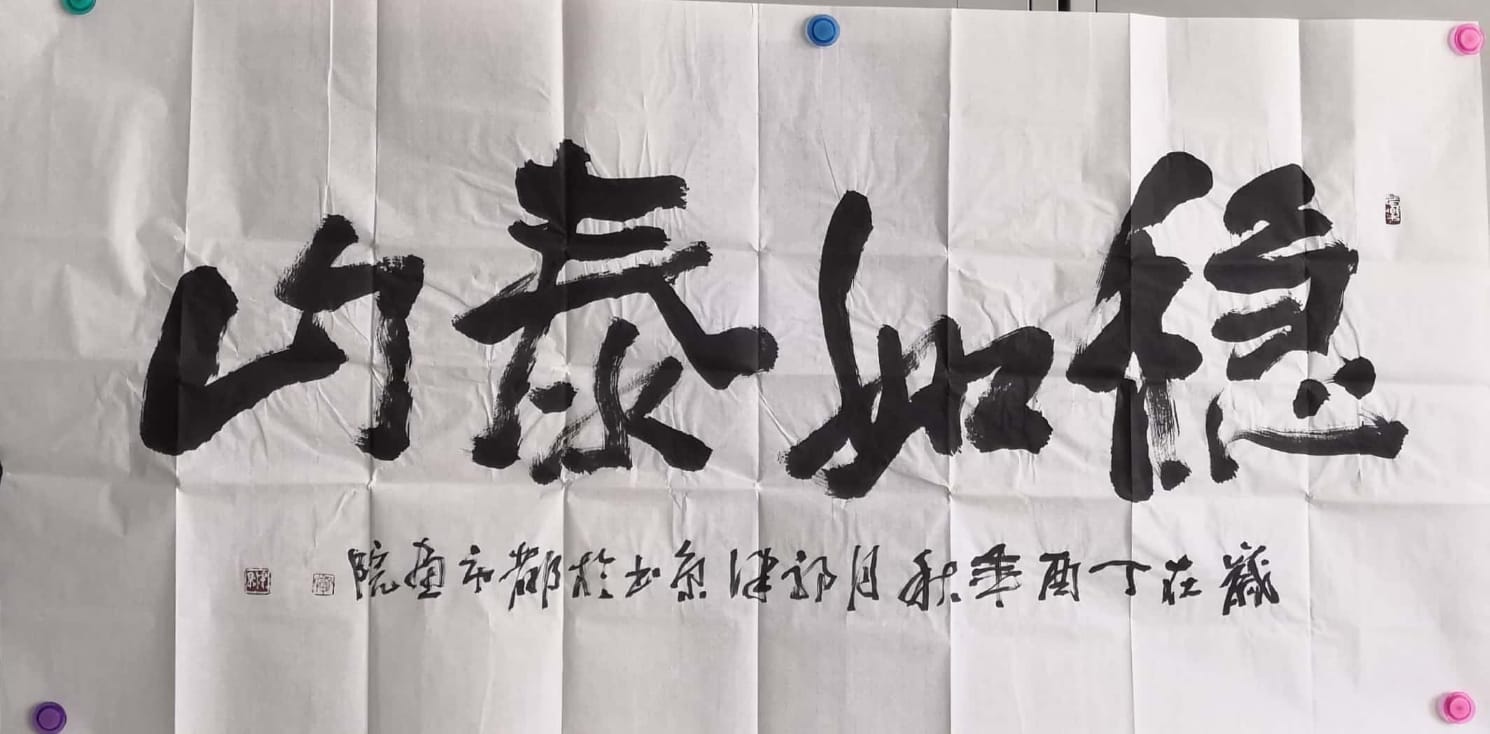 稳如泰山
岁在丁酉年秋月郭津京书于都市画院